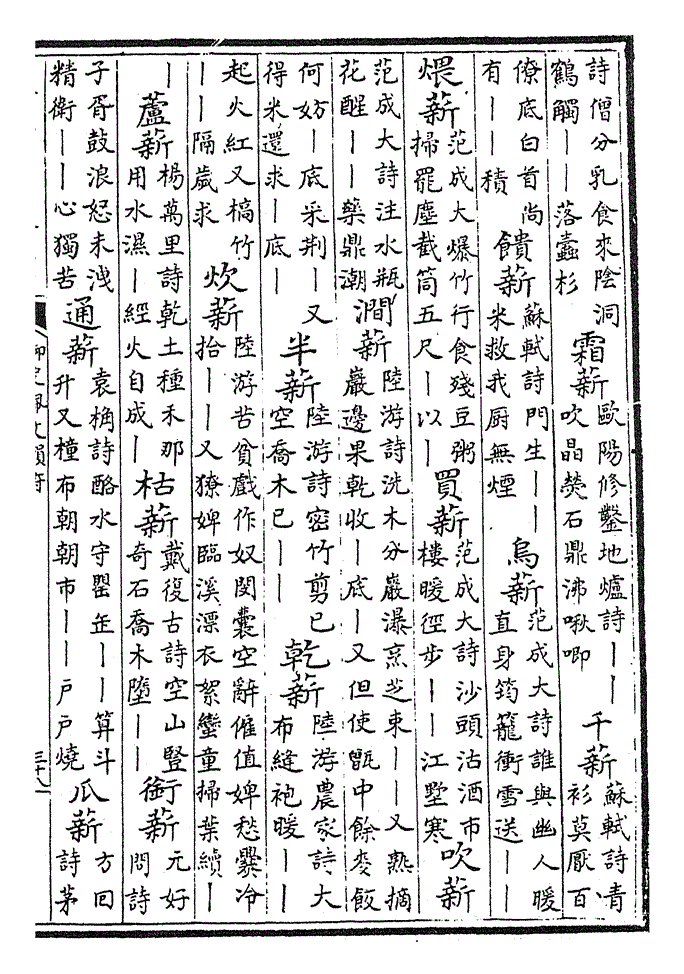 詩僧分乳食來陰洞鶴觸——落蠹杉 霜薪 歐陽修鑿地爐詩——吹晶熒石鼎沸啾唧 千薪 蘇軾詩青衫莫厭百
僚底白首尚有——積 饋薪 蘇軾詩門生——米救我厨無煙 烏薪 范成大詩誰與幽人暖直身筠籠衝雪送——
煨薪 范成大爆竹行食殘豆粥掃罷塵截筒五尺—以— 買薪 范成大詩沙頭沽酒市樓暖徑步——江墅寒 吹薪
范成大詩注水瓶花醒——藥鼎潮 澗薪 陸游詩洗木分巖瀑烹芝束——又熟摘巖邊果乾收—底—又但使甑中餘麥飯
何妨—底采荆—又得米還求—底— 半薪 陸游詩密竹剪已空喬木已—— 乾薪 陸游農家詩大布縫袍暖——
起火紅又槁竹——隔歲求 炊薪 陸游苦貧戲作奴閔囊空辭僱值婢愁爨冷拾——又獠婢臨溪漂衣絮蠻童掃葉續—
— 蘆薪 楊萬里詩乾土種禾那用水濕—經火自成— 枯薪 戴復古詩空山豎奇石喬木墮—— 銜薪 元好問詩
子胥鼓浪怒未洩精衛——心獨苦 通薪 袁桷詩酪水守罌缶——算斗升又橦布朝朝市——戶戶燒 瓜薪 方回詩茅